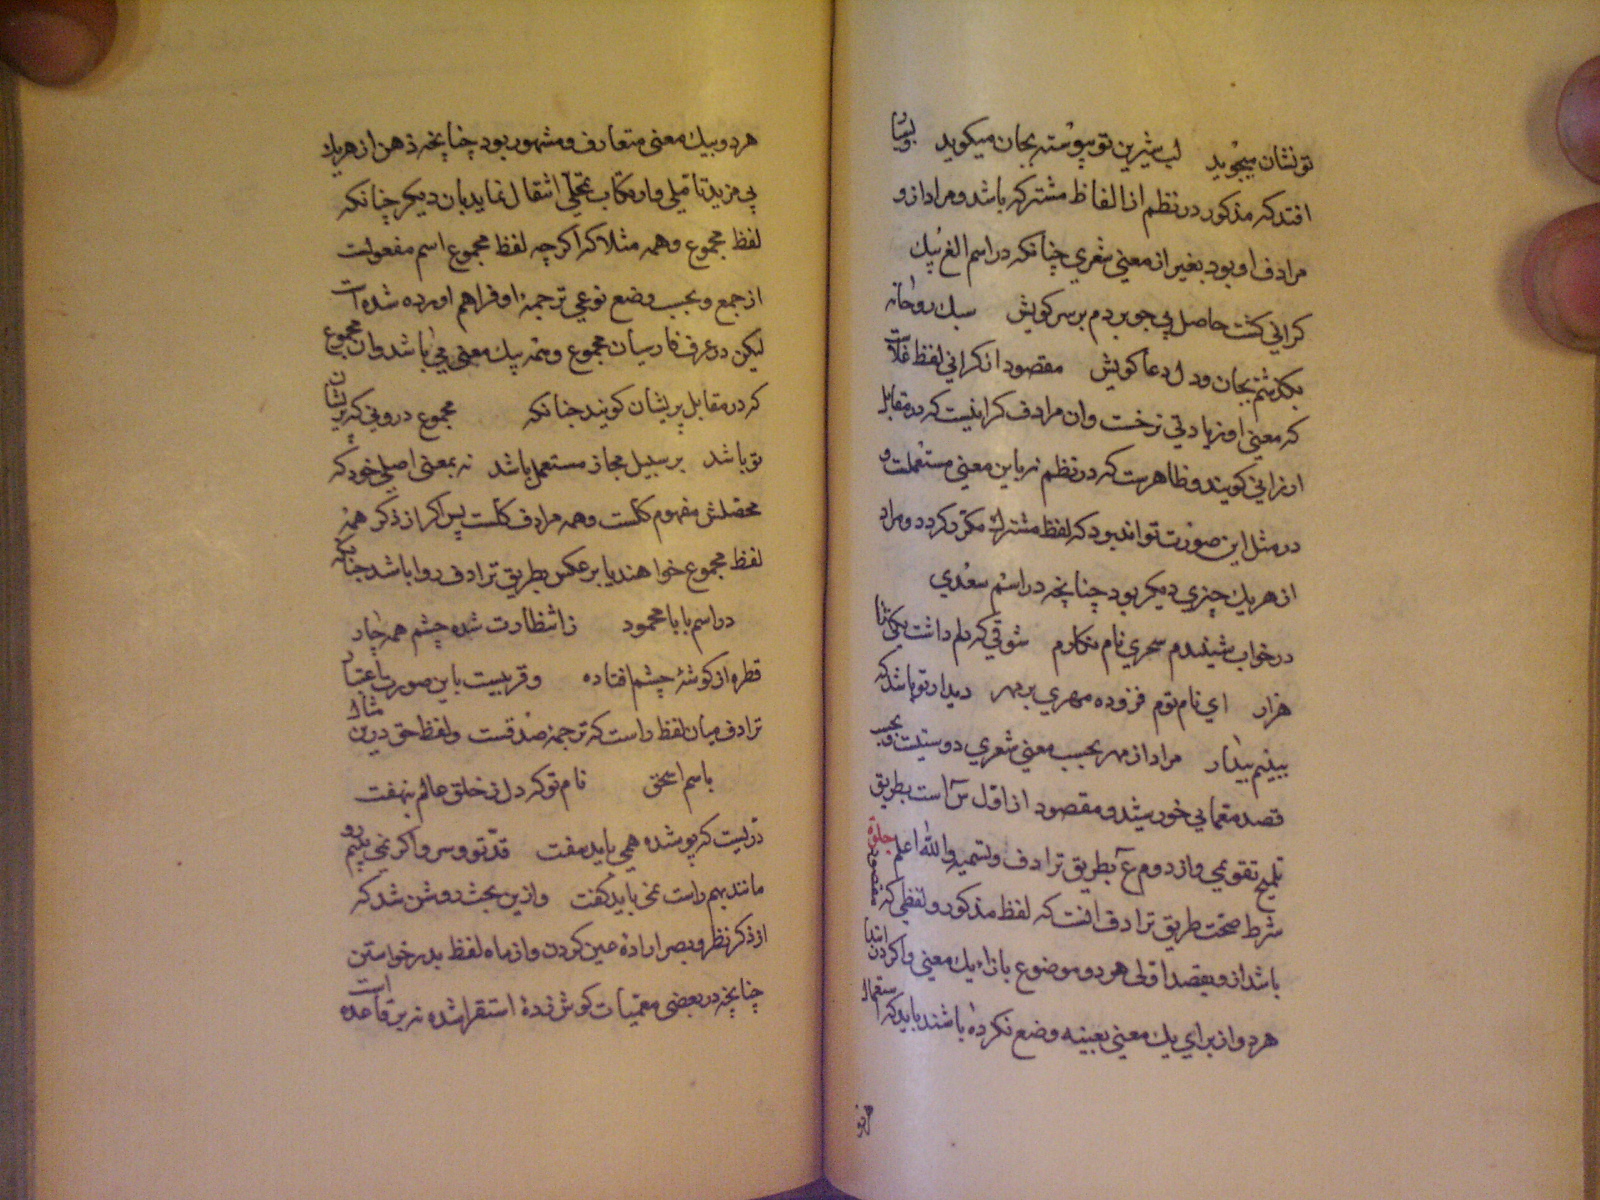 تو نشان میجوید لب شیرین تو پیوسته بجان میکوید
افتد که مذکور در نظم از الفاظ مشترکه باشد و مراد از و
مرادف او بود بغیر از معنی شعری چنانکه در اسم الغ بیك
کرانی کشت حاصل پی جو بردم بر سر کویش سبك روحانه
بکذشتم بجان و دل دعا کویش مقصود از کرانی لفظ غلاست
که معنی او زیادتی نرخست وان مرادف کرانیست که در مقابل
ارزانی کویند و ظاهرست که در نظم نه باین معنی مستعملست و
در مثل این صورت تواند بود که لفظ مشترك مکرر کردد و مراد
از هر یك چیزی دیکر بود چنانچه در اسم سعدی
در خواب شنیدم سحری نام نکارم شوقی که دلم داشت یکی شد
هزار ای نام توم فزوده مهری بر مهر دیدار تو باشد که
ببینم بیدار مراد از مهر بحسب معنی شعری دوستیست و بحسب
قصد معمایی خورشید و مقصود از اول س است بطریق
تلمیح تقویمی و از دوم ع بطریق ترادف و تسمیه والله اعلم
شرط صحت طریق ترادف انست که لفظ مذکور و لفظی که مقصود
باشد از و بقصد اولی هر دو موضوع بازاء یك معنی و اکر در ابتدا
هر دو از برای یك معنی بعینه وضع نکرده باشند باید که استعمال
هر دو
هر دو بیك معنی متعارف و مشهور بود چنانچه ذهن از هر یك
بی مزید تاملی و ارتکاب تمحلی انتقال نماید بان دیکر چنانکه
لفظ مجموع و همه مثلا که اکر چه لفظ مجموع اسم مفعولست
از جمع و بحسب وضع نوعی ترجمهٔ او فراهم اورده شده است
لیکن در عرف فارسیان مجموع و همه بیك معنی می باشد وان مجموع
که در مقابل پریشان کویند چنانکه مجموع درونی که پریشان
تو باشد بر سبیل مجاز مستعمل باشد نه بمعنی اصلی خود که
محصلش مفهوم کلست و همه مرادف کلست پس اکر از ذکر همه
لفظ مجموع خواهند یا بر عکس بطریق ترادف روا باشد چنانکه
در اسم بابا محمود ز انتظارت شده چشم همه چار
قطره از کوشهٔ چشم افتاده و قریبست باین صورت اعتبار
ترادف میان لفظ راست که ترجمهٔ صدقست و لفظ حق درین مثال
باسم اسحق نام تو که دل ز خلق عالم بنهفت
دریست که پوشیده همی باید سفت قد تو و سرو اکر نمی بینم رو
مانند بهم راست نمی باید کفت و ازین بحث روشن شد که
از ذکر نظر و بصر ارادهٔ عین کردن و از ماه لفظ بدر خواستن
چنانچه در بعضی معمیات کوش زدهٔ استقرا شده نه بر قاعده است